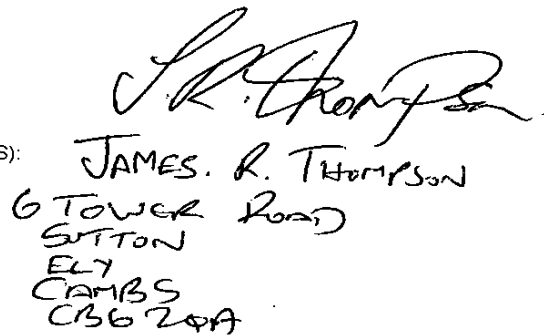 J.R. Thompson
S):
JAMES. R. THOMPSON
6 TOWER ROAD
SUTTON
ELY
CAMBS
CB6 2QA